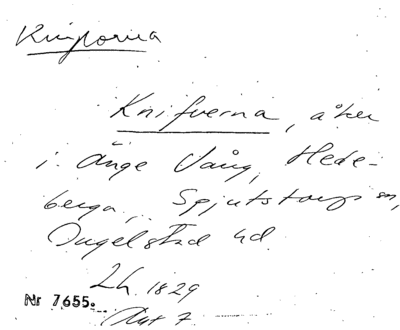 Kniporna
Knifverna, åker
i Änge Vång, Hede-
berga, Spjutstorps sn,
Ingelstad hd.
Lh. 1829
Nr 7655.
Akt 7